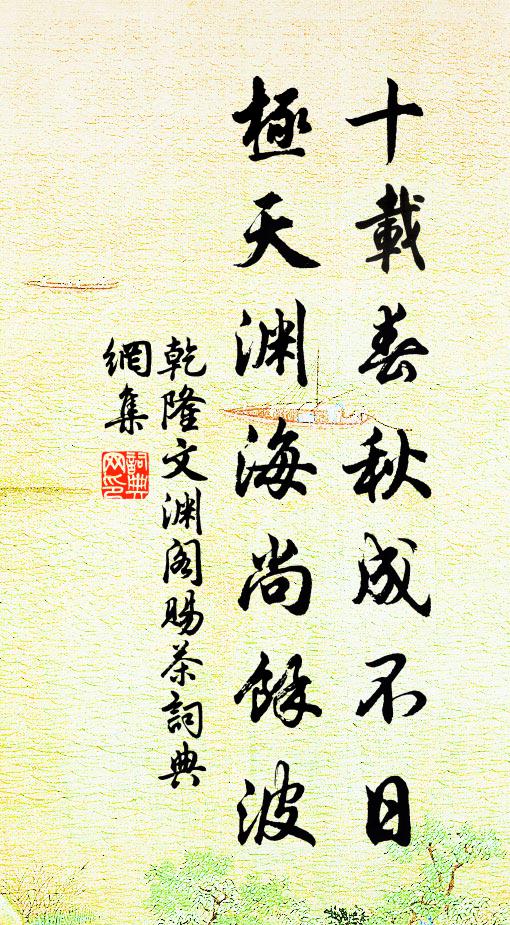 十載春秋成不日
極天淵海尚餘波
乾隆文淵阁賜茶詞典
網集
詞典
网印